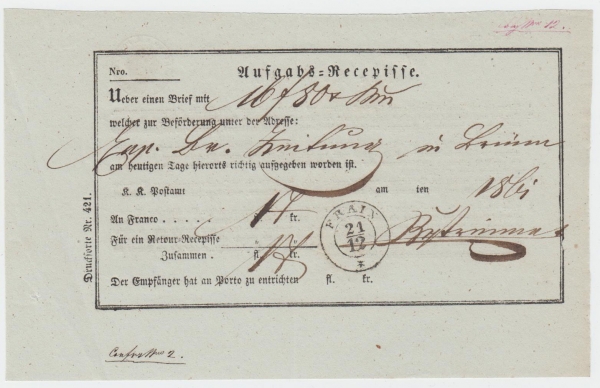 Nro.
Aufgabs=Recepisse.
Ueber einen Brief mit 16 f 80 x
welcher zur Beförderung unter der Adresse:
Exp. Br. Zeitung in Brünn
am heutigen Tage hierorts richtig aufgegeben worden ist.
K. K. Postamt am ten 186
An Franco . . . . . fl. 17 kr.
FRAIN
21
12
Für ein Retour-Recepisse
Zusammen . fl. 17 kr.
Der Empfänger hat an Porto zu entrichten fl. kr.
Druckforte Nr. 421.